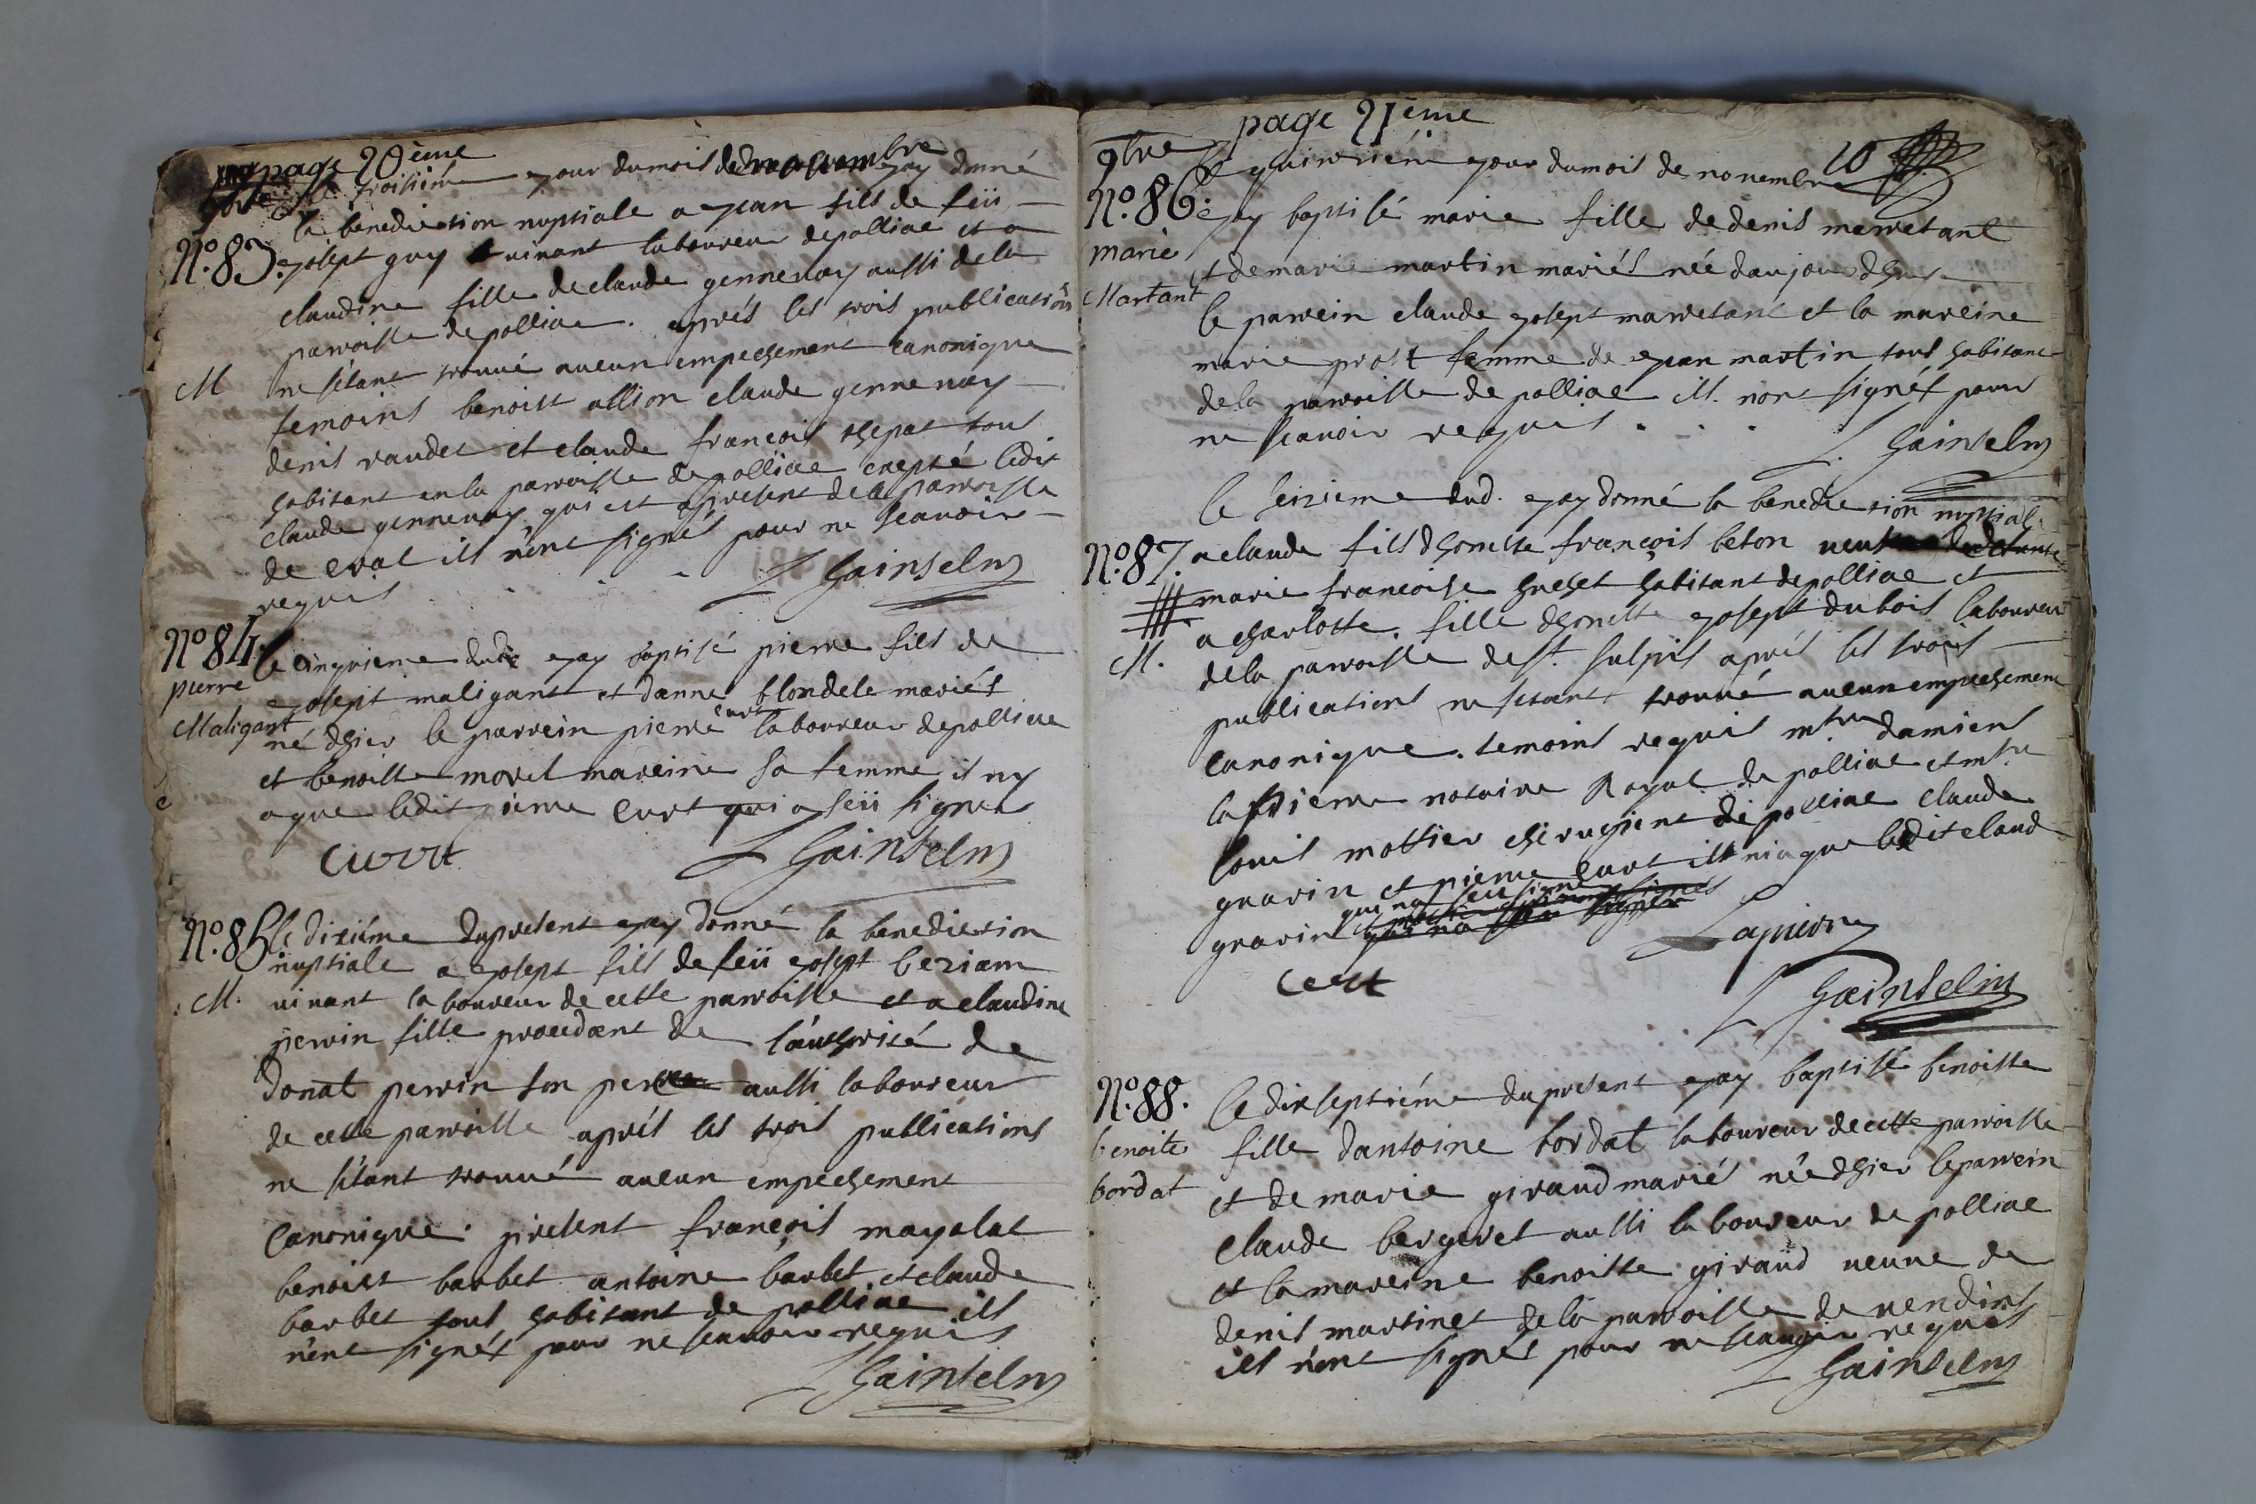 page 20ème
9bre Le troisiéme jour du mois de novembre jay donné
la benediction nuptiale a jean fils de feü
N.º 83. josept guy vivant laboureur de polliac et a
claudine fille de claude gennevay aussi de la
parroisse de polliac. aprés les trois publications
M ne s'etant trouvé aucun empechement canonique
temoins benoist allion claude gennevay
denis vaudet et claude françois chepat tous
habitant en la parroisse de polliac exepté ledit
claude gennevay qui est apresent de la parroisse
de cras ils n'ont signés pour ne scavoir
requis . . . Gainselm
N.º 84. le cinquieme dudit jay baptisé pierre fils de
pierre
josept maligant et danne blondele mariés
Maligant
né dhier le parrein pierre curt laboureur de polliac
et benoiste morel mareine sa femme il ny
a que ledit pierre curt qui a seü signer
Curt Gainselm
N.º 85. le diziéme du present jay donné la benediction
nuptiale a josept fils de feü josept beziam
M. vivant laboureur de cette parroisse et a claudine
perrin fille procedant de l'authorité de
donat perrin son pere aussi laboureur
de cette parroisse aprés les trois publications
ne s'etant trouvé aucun empechement
canonique. present françois mayalat
benoist barbet antoine barbet et claude
barbet tous habitant de polliac ils
n'ont signés pour ne scavoir requis
Gainselm
page 21ème
9bre Le quinziéme jour du mois de novembre 10
N.º 86. jay baptisé marie fille de denis marretant
marie
et de marie martin mariés née daujourdhuy
Martant
le parrein claude josept marretant et la mareine
marie prost femme de jean martin tous habitant
de la parroisse de polliac ils n'ont signés pour
ne scavoir requis . . . Gainselm
le seizieme dud. jay donné la benediction nuptiale
N.º 87. a claude fils dhoneste françois beton
marie francoise habitant de polliac et
a charlotte. fille dhoneste josept dubois laboureur
M. de la parroisse de St. sulpis aprés les trois
publications ne setant trouvé aucun empechement
canonique. temoins requis mtre damiens
lapierre notaire Royal de polliac et mtre
louis mottier chirugient de polliac claude
gravin et pierre curt ils nia que ledit claud
gravin qui na seu signer
Lapierre
Curt
Gainselm
N.º 88. le dixseptiéme du present jay baptisé benoiste
benoite fille dantoine bordat laboureur de cette parroisse
bordat et de marie giraud mariés née dhier le parrein
claude bergeret aussi laboureur de polliac
et la mareine benoiste giraud veuve de
denis martinet de la parroisse de vendins
ils n'ont signés pour ne scavoir requis
Gainselm